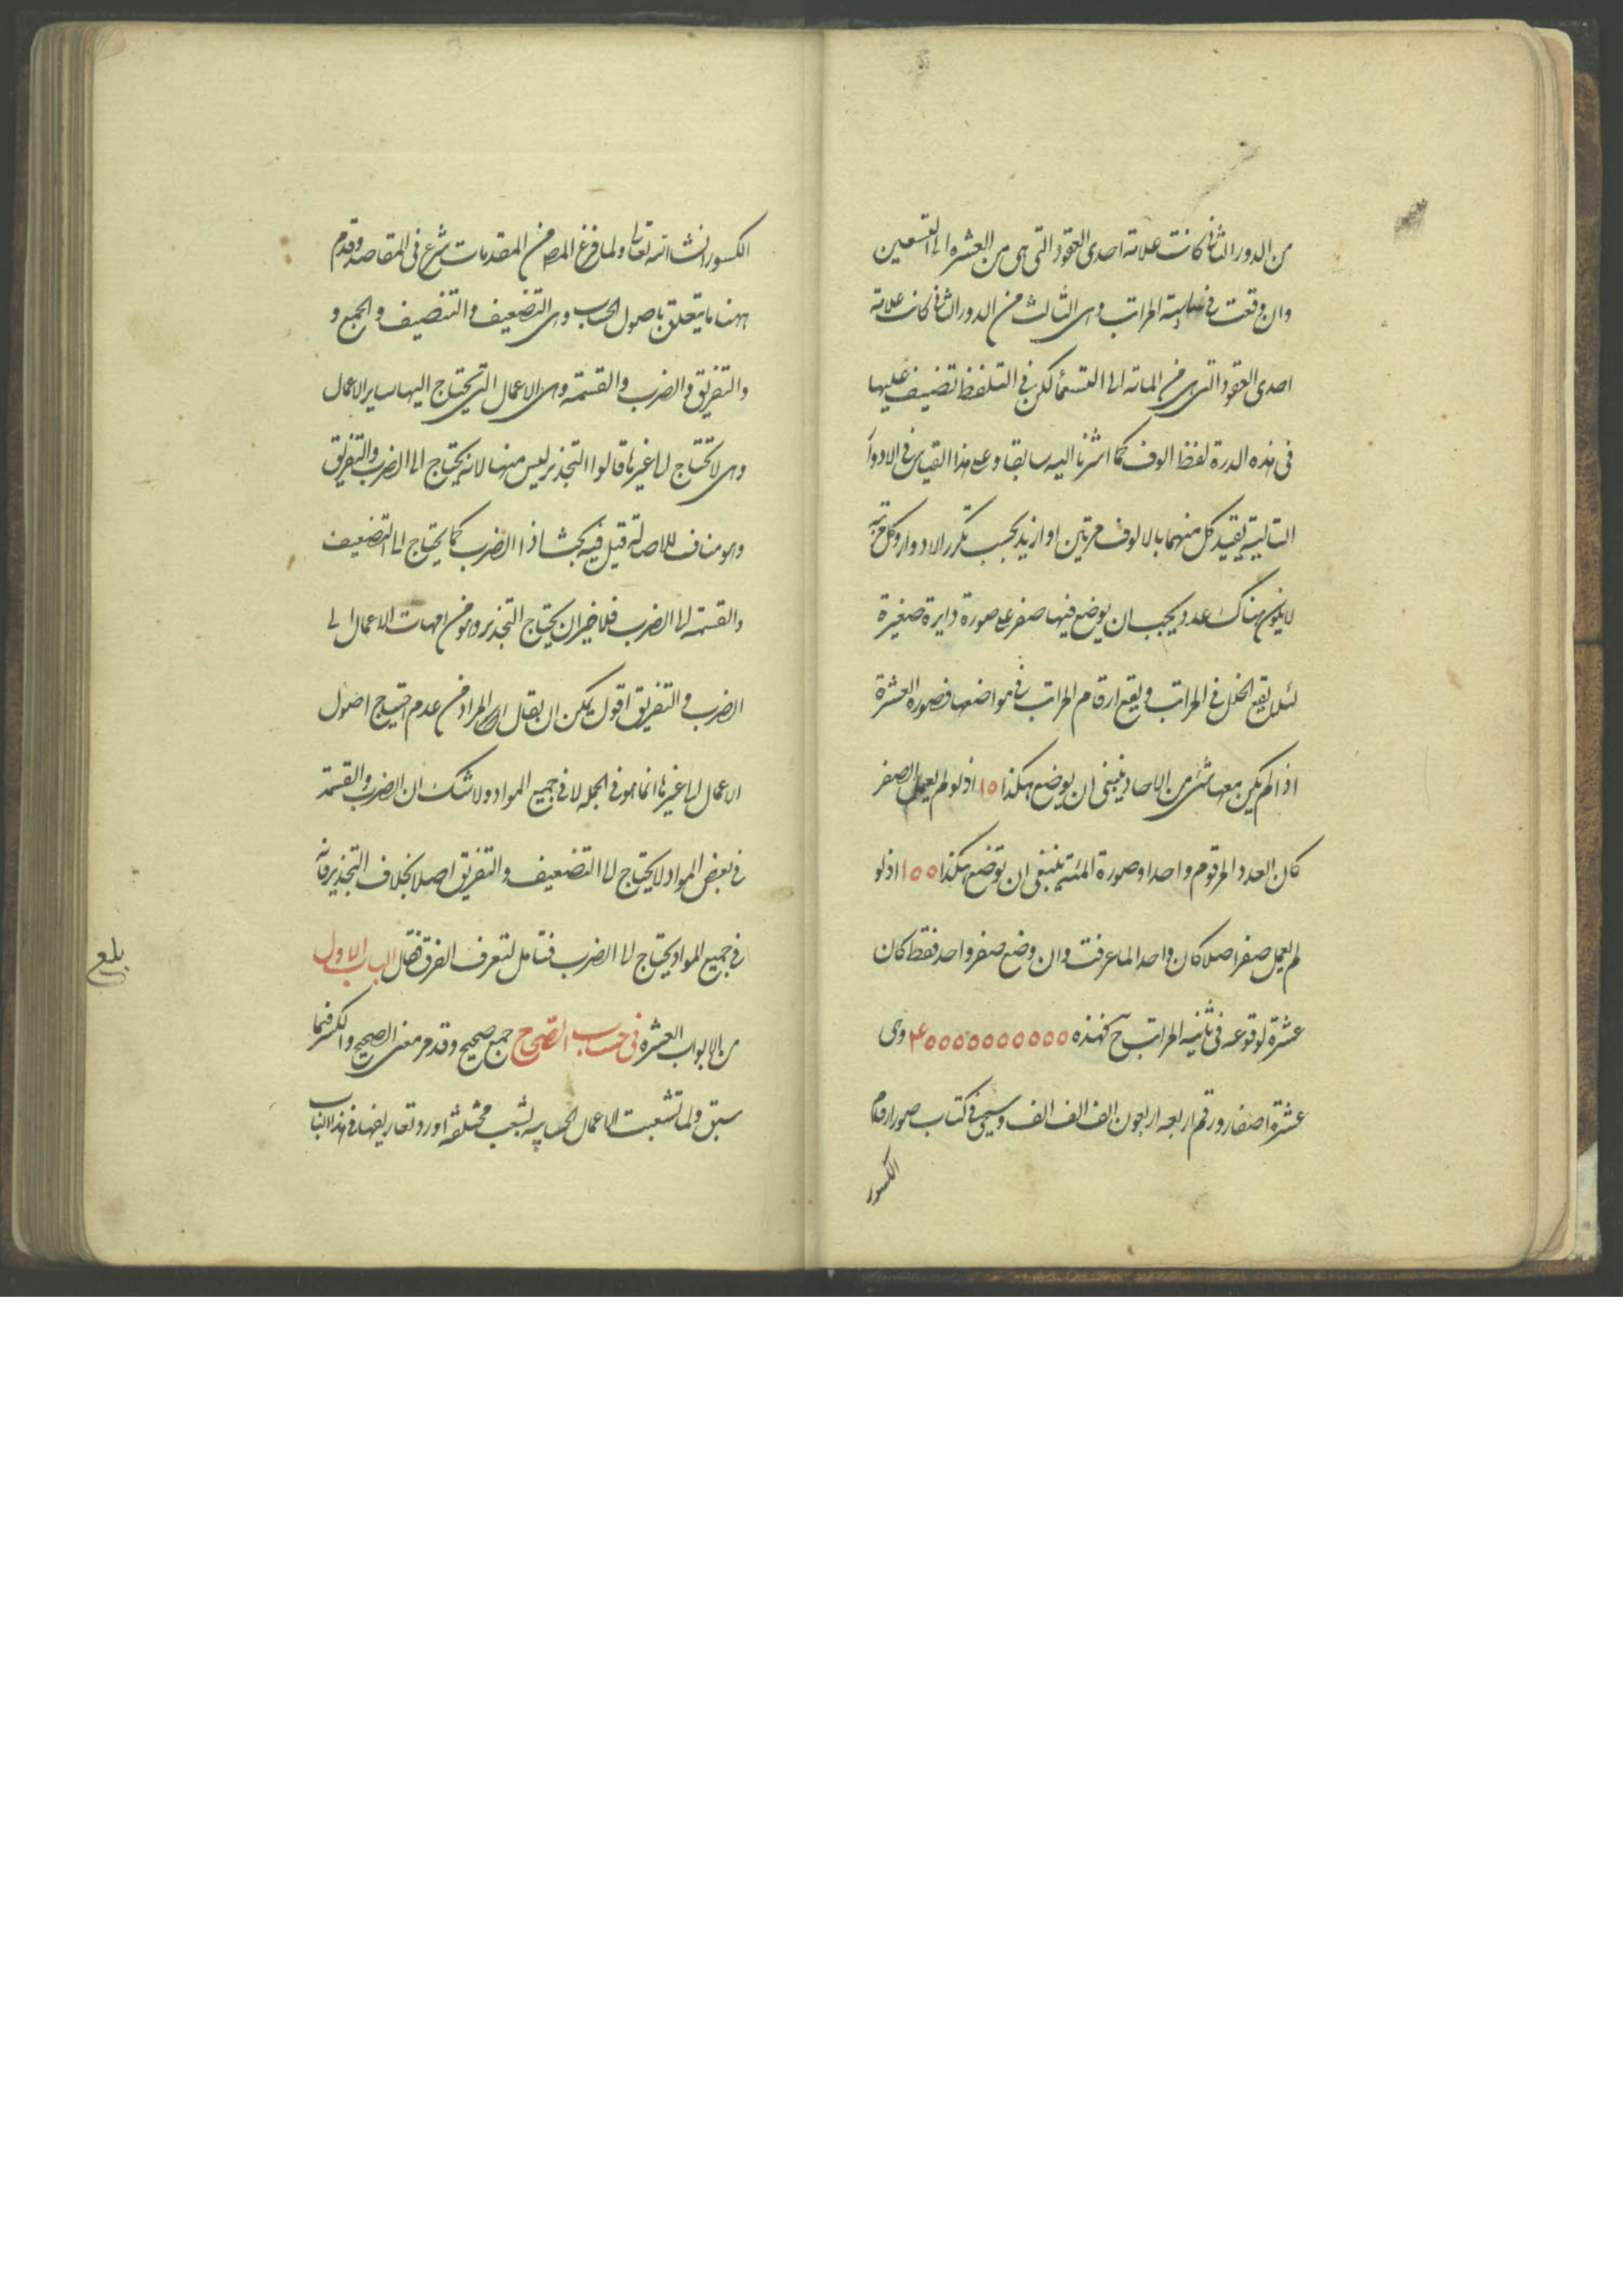 من الدور الثانى كانت علامة احدى العقود التى هى من العشره الى التسعين
وان وقعت فى المراتب وهى الثالث من الدور الثانى كانت علامة
احدى العقود التى هى من المائة الى التسعمأ لكن فى التلفظ تضيف عليها
فى هذه الدرة لفظ الوف كما اشرنا اليه سابقا وعلى هذا القياس فى الادوار
التالية يقيد كل منهما بالالوف مرتين او ازيد بحسب تكرر الادوار وكل مرتبة
لا يكون هناك عدد يجب ان يوضع فيها صفر على صورة دايرة صغيرة
لئلا يقع الخلل فى المراتب ويقع ارقام المراتب فى مواضعها فصورة العشرة
اذا لم يكن معها شئ من الاحاد ينبغى ان يوضع هكذا ١٥ اذ لو لم يعمل الصفر
كان العدد المرقوم واحدا وصورة المئة ينبغى ان توضع هكذا ١٥٥ اذ لو
لم يعمل صفر اصلا كان واحدا لما عرفت وان وضع صفر واحد فقط كان
عشرة لوقوعه فى ثانية المراتب ح كهذه ۴٥٥٥٥٥٥٥٥٥٥ وهى
عشرة اصفار ورقم اربعه اربعون الف الف الف وسيجئ فى كتاب صور ارقام
الكسور
الكسور انشا الله تعالى ولما فرغ المص من المقدمات شرع فى المقاصد وقدم
ههنا ما يتعلق باصول الحساب وهى التضعيف والتنصيف والجمع و
والتفريق والضرب والقسمة وهى الاعمال التى يحتاج اليها ساير الاعمال
وهى لا تحتاج الى غيرها قالوا التجذير ليس منها لانه يحتاج الى الضرب والتفريق
وهو مناف للاصالة قيل فيه بحث اذ الضرب كما يحتاج الى التضعيف
والقسمة الى الضرب فلا ضير ان يحتاج التجذير وهو من امهات الاعمال الى
الضرب والتفريق اقول يمكن ان يقال ان المراد من عدم احتياج اصول
الاعمال الى غيرها انما هو فى الجملة لا فى جميع المواد ولا شك ان الضرب والقسمة
فى بعض المواد لا يحتاج الى التضعيف والتفريق اصلا بخلاف التجذير فانه
فى جميع المواد يحتاج الى الضرب فتامل لتعرف الفرق فقال الباب الاول
بلغ
من الابواب العشرة فى حساب الصحاح جمع صحيح وقد مر معنى الصحيح والكسر فيما
سبق ولما تشعبت الاعمال الحسابيه بشعب مختلفة اورد تعاريفها فى هذا الباب